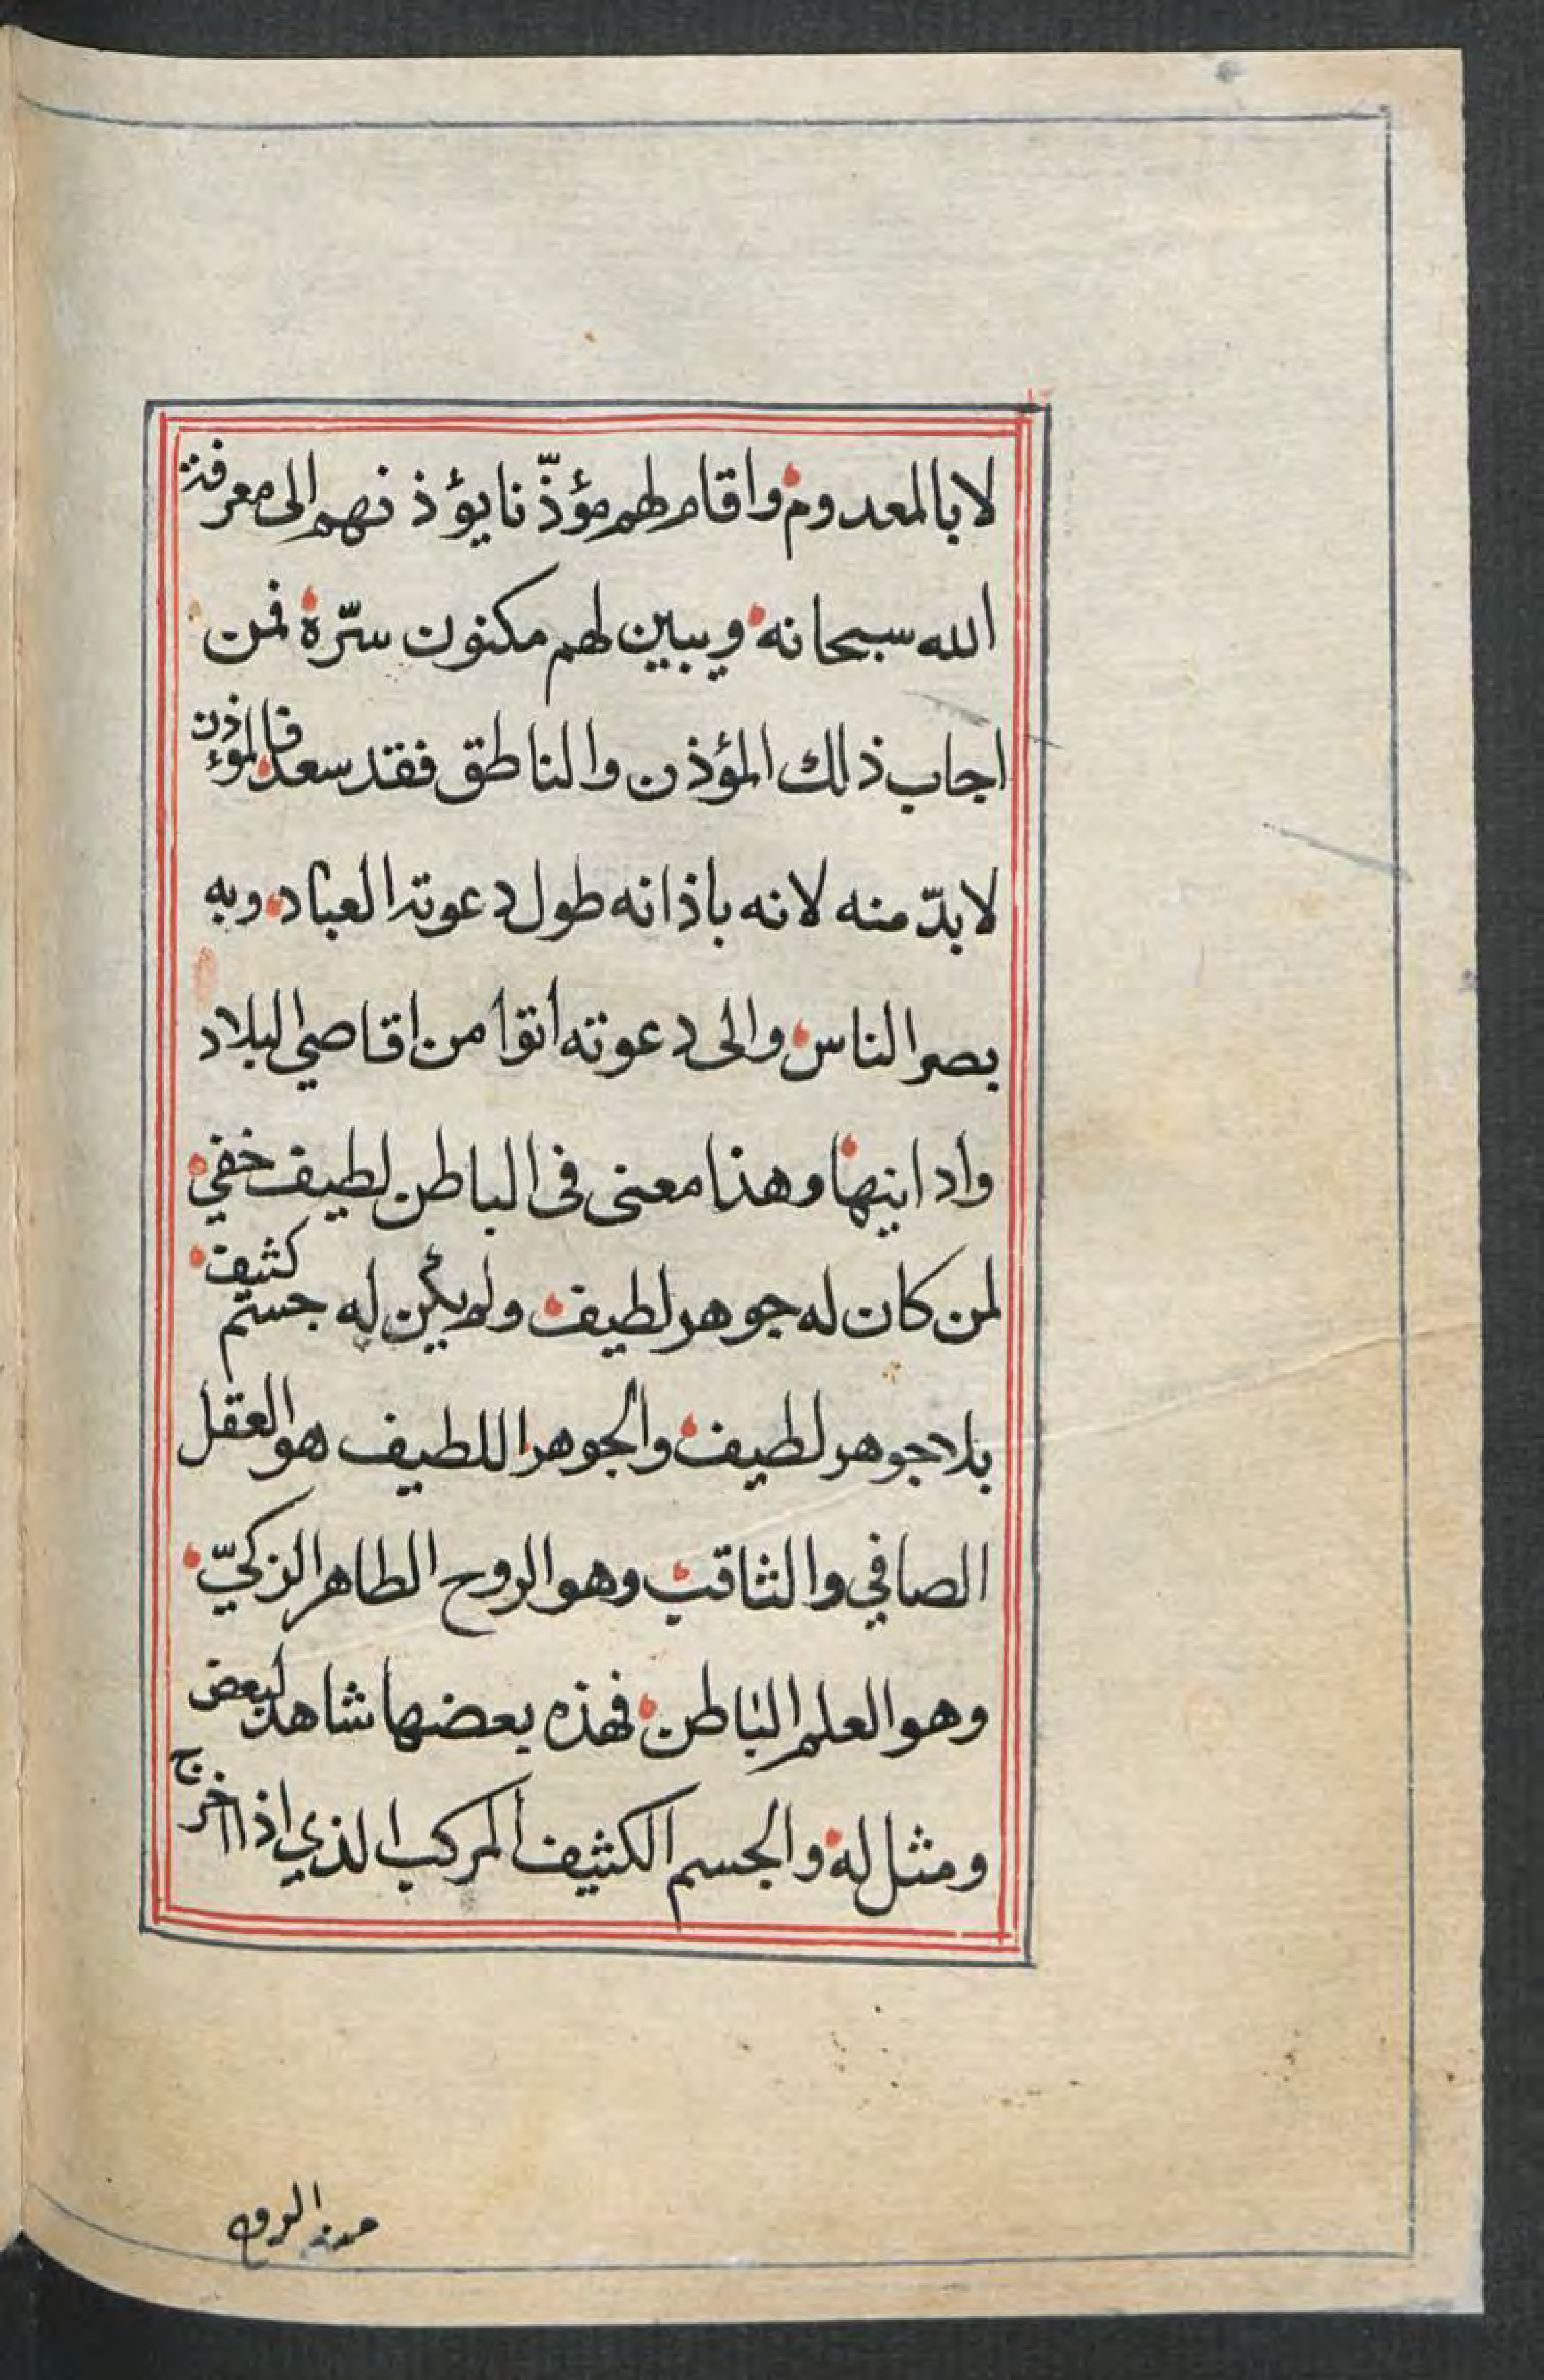 لا بالمعدوم واقام لهم مؤذّنا يؤذنهم الى معرفة
الله سبحانه ويبين لهم مكنون سرّه فمن
اجاب ذلك المؤذن والناطق فقد سعد فالموءذن
لا بدّ منه لانه باذانه طول دعوته العباد وبه
بصر الناس والى دعوته اتوا من اقاصي البلاد
وادانيها وهذا معنى فى الباطن لطيف خفي
لمن كان له جوهر لطيف ولم يكن له جسم كثيف
بلا جوهر لطيف والجوهر اللطيف هو العقل
الصافي والثاقب وهو الروح الطاهر الزكيّ
وهو العلم الباطن فهذه بعضها شاهد لبعض
ومثل له والجسم الكثيف المركب الذي اذا اخرج
منه الروح